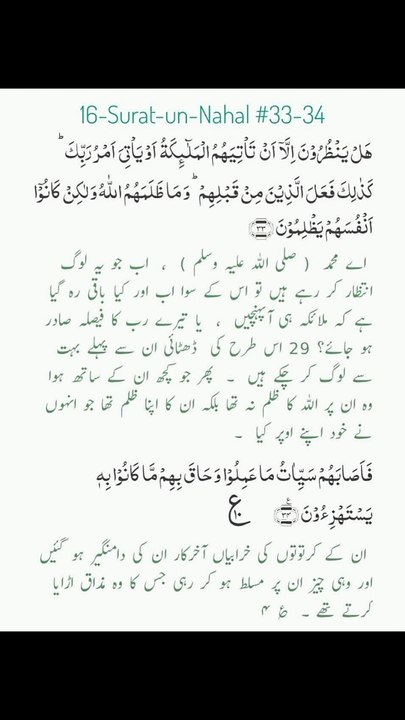 16-Surat-un-Nahal #33-34
هَلۡ يَنۡظُرُوۡنَ اِلَّاۤ اَنۡ تَاۡتِيَهُمُ الۡمَلٰۤٮِٕكَةُ اَوۡ يَاۡتِىَ اَمۡرُ رَبِّكَ‌ؕ
كَذٰلِكَ فَعَلَ الَّذِيۡنَ مِنۡ قَبۡلِهِمۡ‌ؕ وَمَا ظَلَمَهُمُ اللّٰهُ وَلٰـكِنۡ كَانُوۡۤا
اَنۡفُسَهُمۡ يَظۡلِمُوۡنَ ﴿۳۳﴾
اے محمد ( صلی اللہ علیہ وسلم ) ، اب جو یہ لوگ
انتظار کر رہے ہیں تو اس کے سوا اب اور کیا باقی رہ گیا
ہے کہ ملائکہ ہی آ پہنچیں ، یا تیرے رب کا فیصلہ صادر
ہو جائے؟ 29 اس طرح کی ڈھٹائی ان سے پہلے بہت
سے لوگ کر چکے ہیں ۔ پھر جو کچھ ان کے ساتھ ہوا
وہ ان پر اللہ کا ظلم نہ تھا بلکہ ان کا اپنا ظلم تھا جو انہوں
نے خود اپنے اوپر کیا ۔
فَاَصَابَهُمۡ سَيِّاٰتُ مَا عَمِلُوۡا وَحَاقَ بِهِمۡ مَّا كَانُوۡا بِهٖ
يَسۡتَهۡزِءُوۡنَ ﴿۳۴﴾ ع
ان کے کرتوتوں کی خرابیاں آخرکار ان کی دامنگیر ہو گئیں
اور وہی چیز ان پر مسلط ہو کر رہی جس کا وہ مذاق اڑایا
کرتے تھے ۔ ؏ ۴